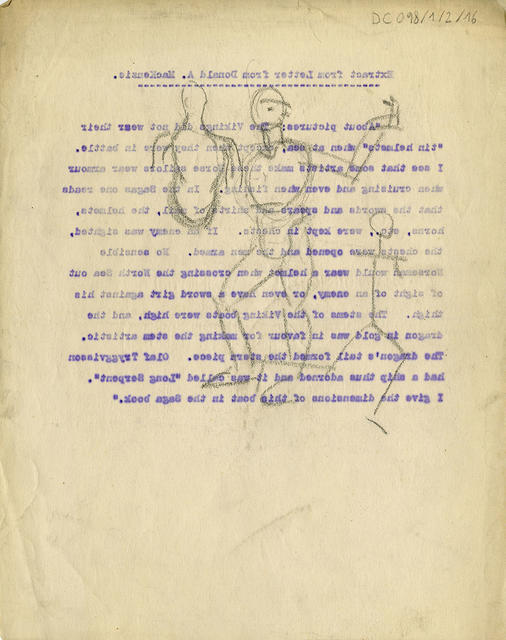 DC 098/1/2/16
Extract from Letter from Donald A. MacKenzie.
"About pictures: The Vikings did not wear their
"tin helmets" when at sea, except when they were in battle.
I see that some artists make these Norse sailors wear armour
when cruising and even when fishing. In the Sagas one reads
that the swords and spears and shirts of mail, the helmets,
horns, etc., were kept in chests. If an enemy was sighted,
the chests were opened and the men armed. No sensible
Norseman would wear a helmet when crossing the North Sea out
of sight of an enemy, or even have a sword girt against his
thigh. The stems of the Viking boats were high, and the
dragon in gold was in favour for making the stem artistic.
The dragon's tail formed the stern piece. Olaf Tryggvisson
had a ship thus adorned and it was called "Long Serpent".
I give the dimensions of this boat in the Saga book."